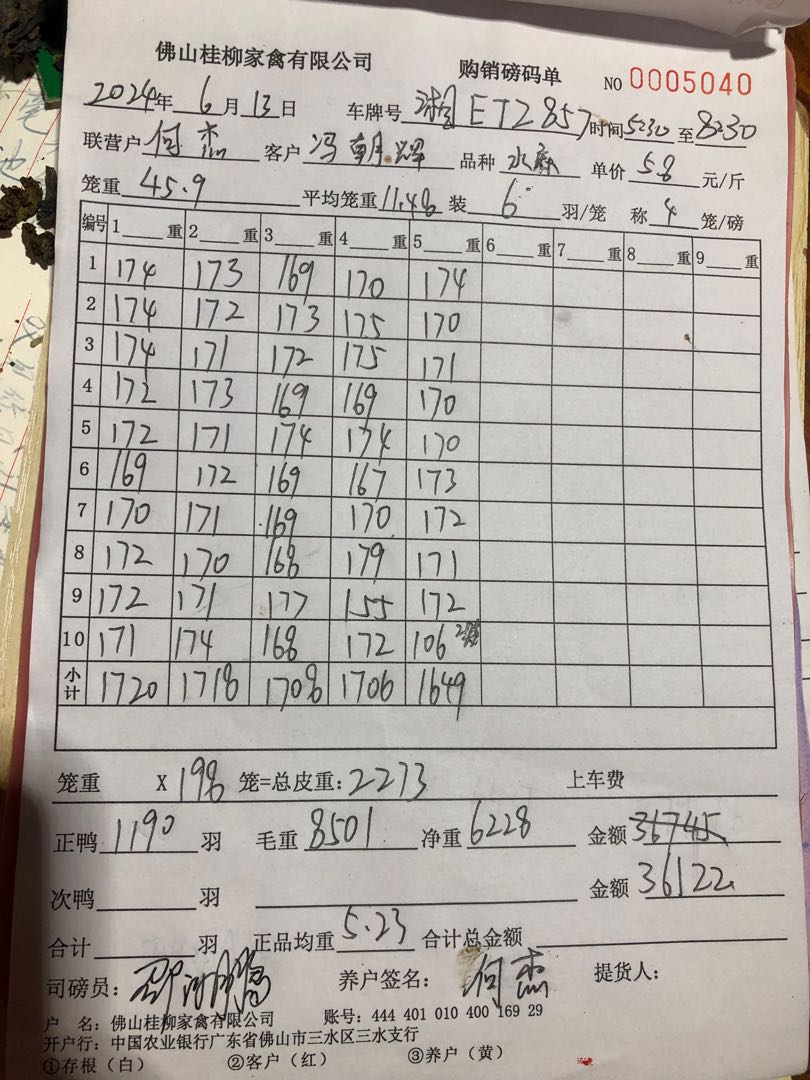 佛山桂柳家禽有限公司 购销磅码单 NO 0005040
2024年 6月 13日 车牌号 湘ET2857 时间 5:30 至 8:30
联营户 何杰 客户 冯朝辉 品种 水麻 单价 5.8 元/斤
笼重 45.9 平均笼重 11.48 装 6 羽/笼 称 4 笼/磅
编号 1 重 2 重 3 重 4 重 5 重 6 重 7 重 8 重 9 重
1 174 173 169 170 174
2 174 172 173 175 170
3 174 171 172 175 171
4 172 173 169 169 170
5 172 171 174 174 170
6 169 172 169 167 173
7 170 171 169 170 172
8 172 170 168 179 171
9 172 171 177 155 172
10 171 174 168 172 106
小计 1720 1718 1708 1706 1649
笼重 X 198 笼=总皮重: 2273 上车费
正鸭 1190 羽 毛重 8501 净重 6228 金额 36745
次鸭 羽 金额 36122
合计 羽 正品均重 5.23 合计总金额
司磅员: 养户签名: 何杰 提货人:
户 名: 佛山桂柳家禽有限公司 账号: 444 401 010 400 169 29
开户行: 中国农业银行广东省佛山市三水区三水支行
①存根（白） ②客户（红） ③养户（黄）